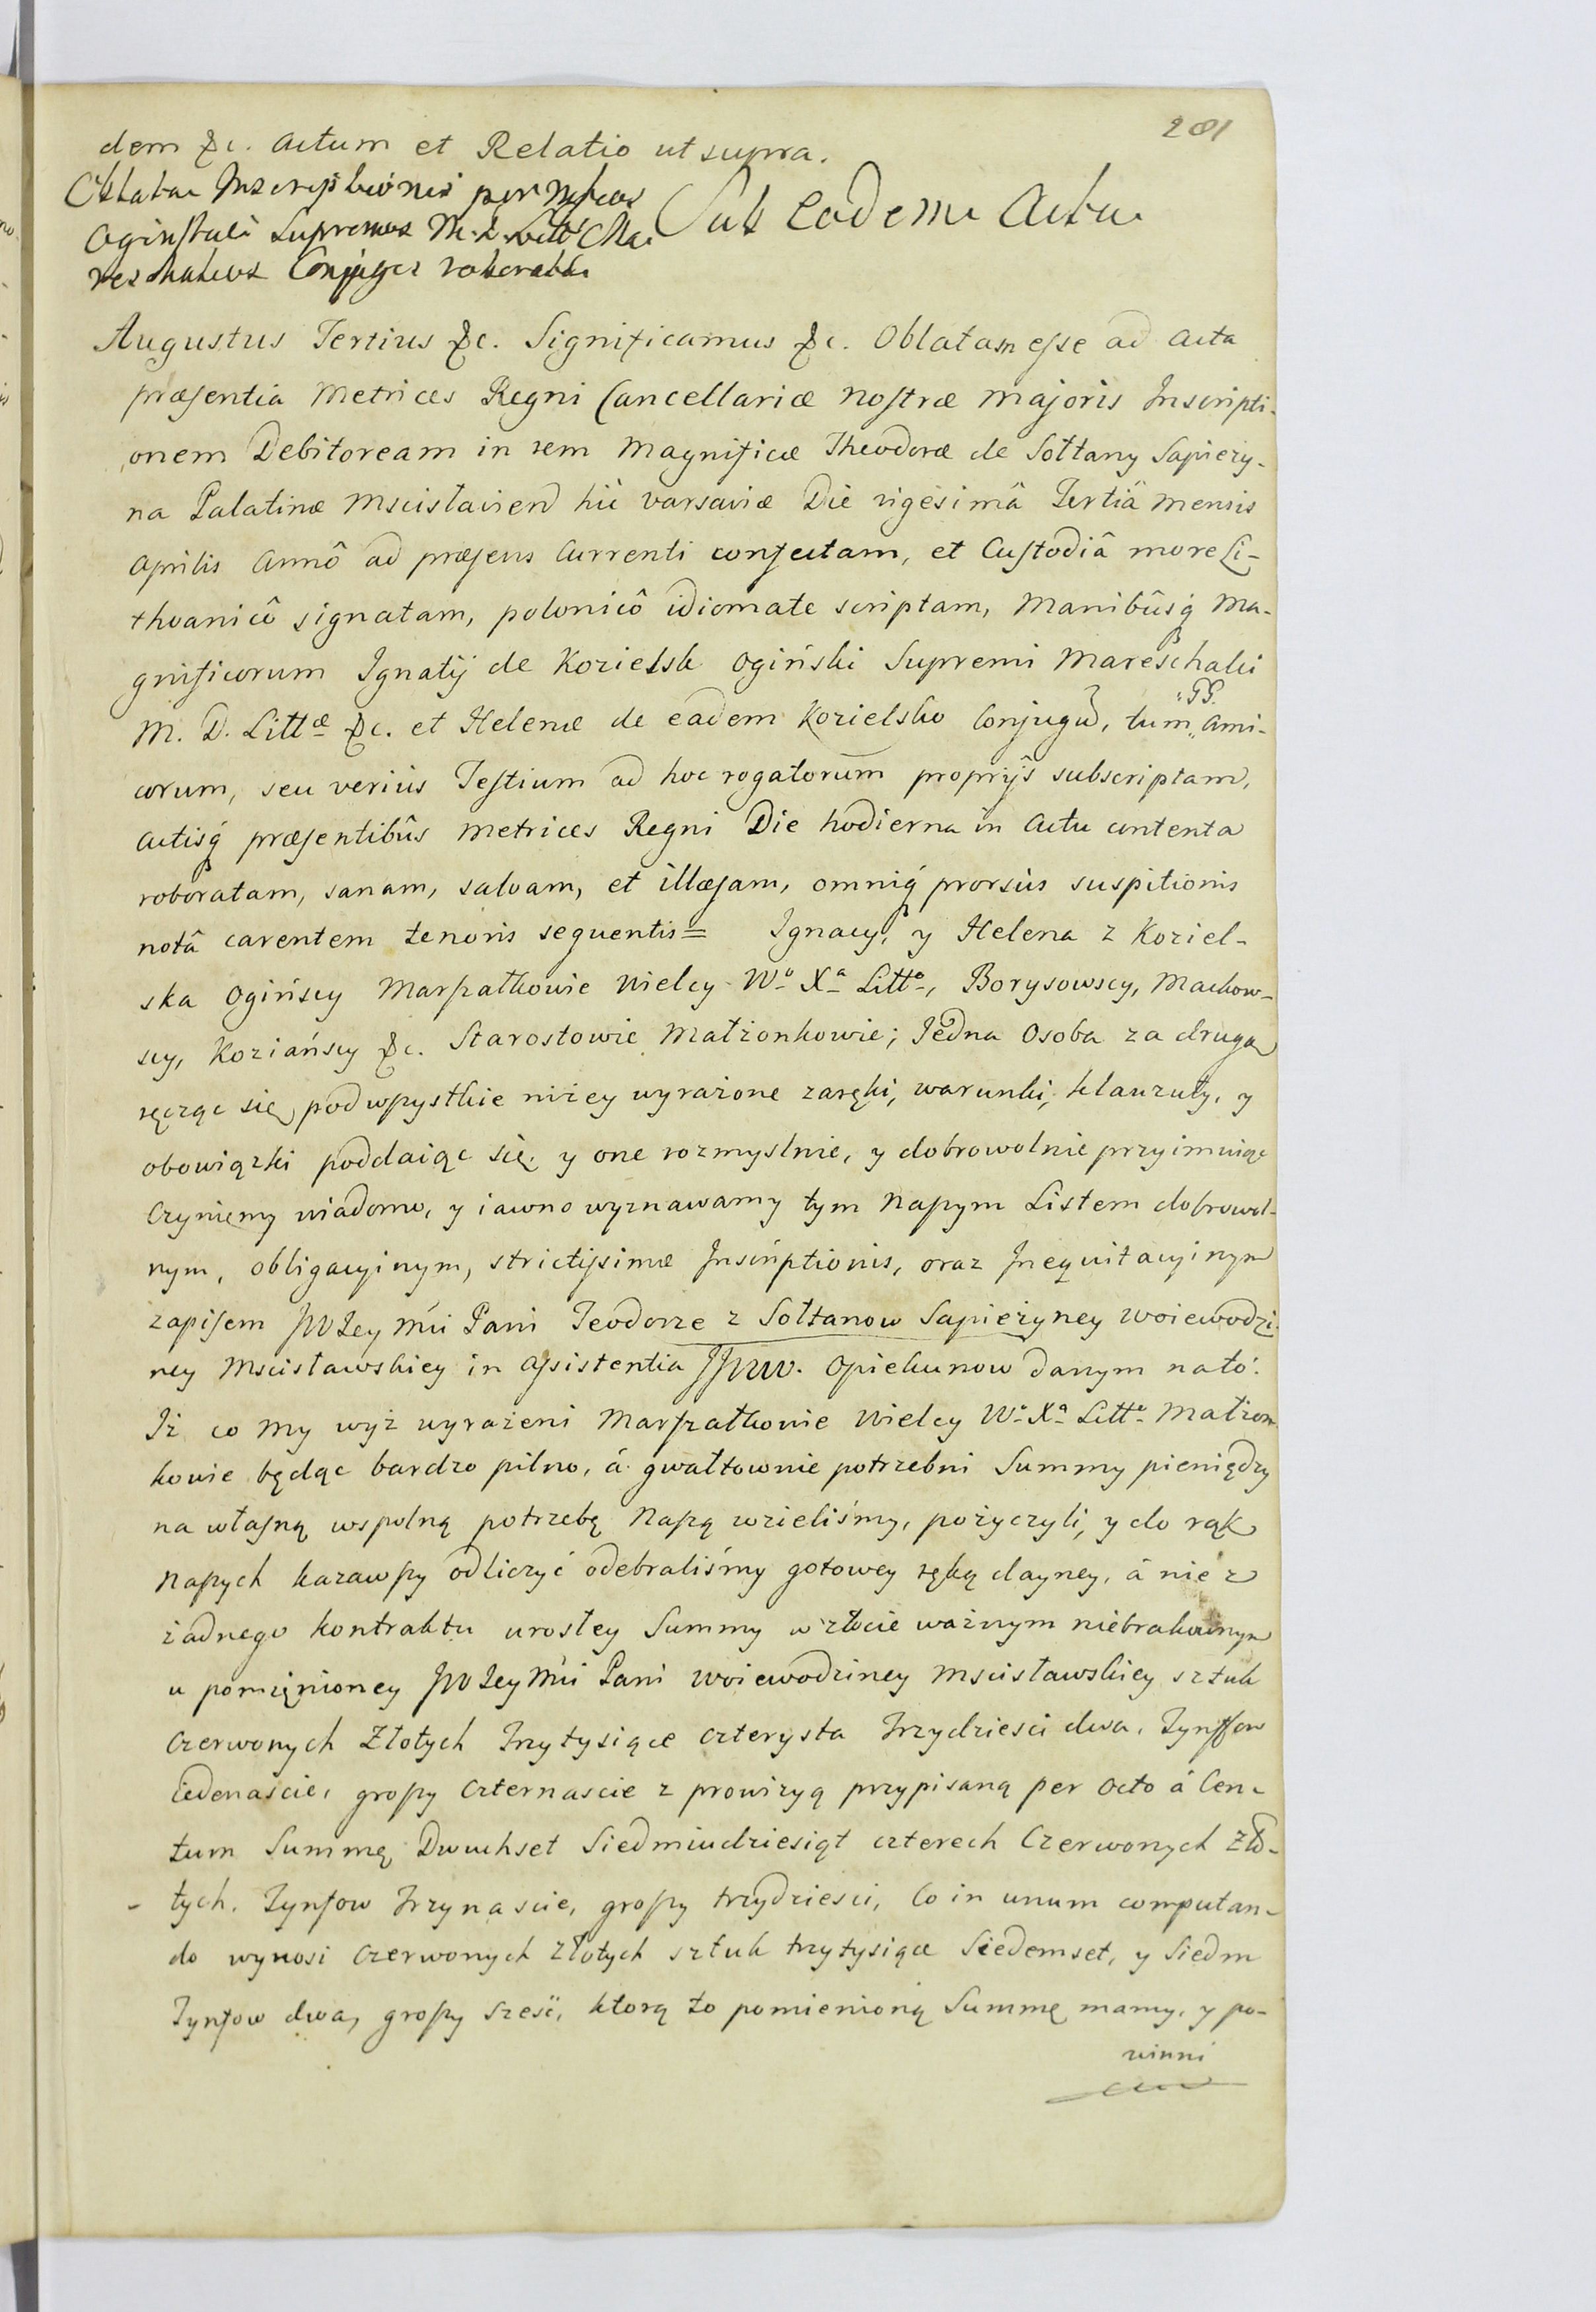 281
dem &c. Actum et Relatio ut supra.
Oblatae Inscriptionis per Mgficos
Oginskie Supremos M. D. Litt. Ma-
reschalcos Conjuges roboratae
Sub Eodem Actu
Augustus Tertius &c. Significamus &c. Oblatam esse ad Acta
præsentia Metrices Regni Cancellariæ Nostræ Majoris Inscripti-
onem Debitoream in rem Magnificæ Theodoræ de Sołtany Sapieży-
na Palatinæ Mscislavien hic Varsaviæ Die vigesimâ Tertiâ Mensis
Aprilis Annô ad præsens Currenti confectam, et Custodiâ more Li-
thvanicô signatam, polonicô idiomate scriptam, Manibûsq Ma-
gnificorum Ignatij de Kozielsk Ogiński Supremi Mareschalci
M. D. Littæ &c. et Helenæ de eadem Kozielsko Conjugu, tum GG. Ami-
corum, seu verius Testium ad hoc rogatorum proprijs subscriptam,
Actisq præsentibûs Metrices Regni Die hodierna in Actu contenta
roboratam, sanam, salvam, et illæsam, omniq prorsùs suspitionis
notâ carentem tenoris sequentis = Ignacy, y Helena z Koziel-
ska Ogińscy Marszałkowie Wielcy Wo Xa Litto, Borysowscy, Machow-
scy, Koziańscy &c. Starostowie Małżonkowie; Jedna Osoba za drugą
ręcząc się, pod wszystkie niżey wyrażone zaręki, warunki, klauzuły, y
obowiązki poddaiąc się, y one rozmyslnie, y dobrowolnie przyimuiąc
Czyniemy wiadomo, y iawno wyznawamy tym Naszym Listem dobrowol-
nym, obligacyinym, strictissimæ Inscriptionis, oraz Inequitacyinym
zapisem JW Jey Mći Pani Teodorze z Sołtanow Sapieżyney Woiewodzi-
ney Mscisławskiey in Assistentia JJWW. Opiekunow danym na to:
Iż co My wyż wyrażeni Marszałkowie Wielcy Wo Xa Litto Małżon-
kowie będąc bardzo pilno, á gwałtownie potrzebni Summy pieniędzy
na własną wspolną potrzebę Naszą wzieliśmy, pożyczyli, y do rąk
Naszych kazawszy odliczyć odebraliśmy gotowey ręką dayney, á nie z
żadnego kontraktu urosłey Summy w złocie ważnym niebrakownym
u pomięnioney JW Jey Mći Pani Woiewodziney Mscisławskiey sztuk
Czerwonych Złotych Trzytysiące czterysta Trzydziesci dwa, Tynffow
iedenaście, groszy czternascie z prowizyą przypisaną per Octo á Cen-
tum Summę Dwuchset Siedmiudziesiąt czterech Czerwonych Zło-
tych, Tynfow Trzynascie, groszy trzydziesci, Co in unum computan-
do wynosi Czerwonych Złotych sztuk trzytysiące Siedemset, y Siedm
Tynfow dwa, groszy szesć, ktorą to pomienioną Summę mamy, y po-
winni